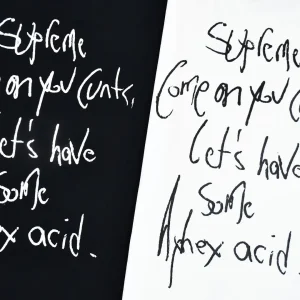 Supreme
e on you Cunts,
et's have
Some
ex acid.
Supreme
Come on you C
Let's have
Some
Aphex acid.